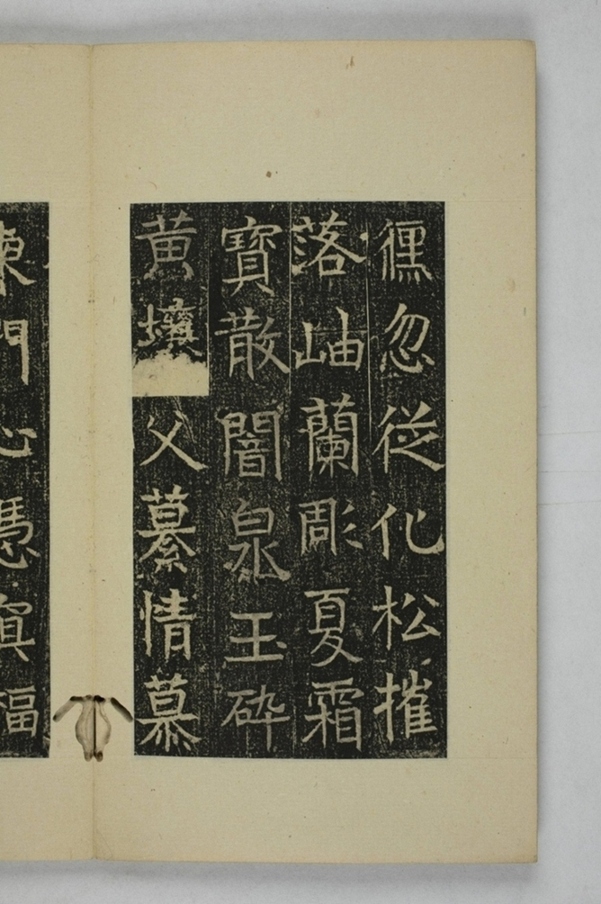 忽従化松摧
落岫蘭彫夏霜
寶散闇泉玉砕
黄壤父情慕
門心憑福